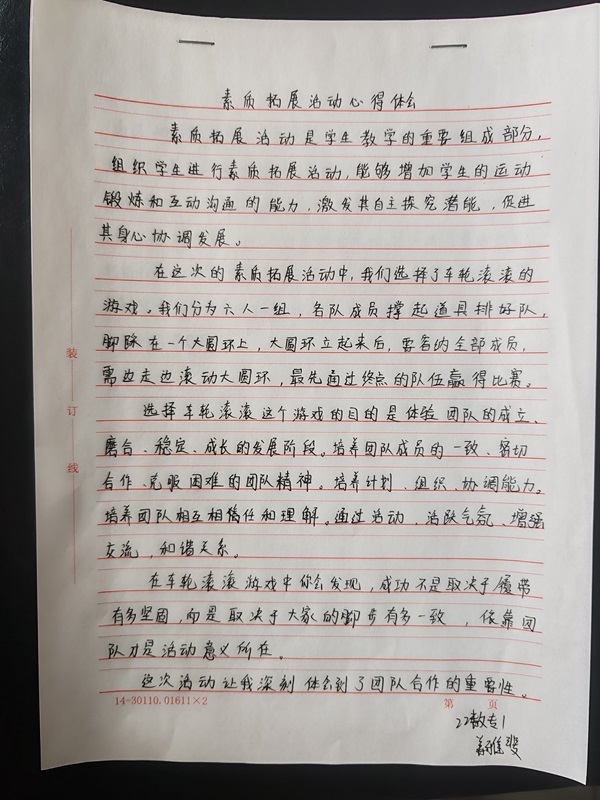 素质拓展活动心得体会
素质拓展活动是学生教学的重要组成部分,
组织学生进行素质拓展活动,能够增加学生的运动
锻炼和互动沟通的能力,激发其自主探究潜能,促进
其身心协调发展。
在这次的素质拓展活动中,我们选择了车轮滚滚的
游戏。我们分为六人一组,各队成员撑起道具排好队,
脚踩在一个大圆环上,大圆环立起来后,要容纳全部成员,
需边走边滚动大圆环,最先通过终点的队伍赢得比赛。
选择车轮滚滚这个游戏的目的是体验团队的成立、
磨合、稳定、成长的发展阶段。培养团队成员的一致、密切
合作、克服困难的团队精神。培养计划、组织、协调能力。
培养团队相互相信任和理解。通过活动,活跃气氛、增强
交流,和谐关系。
在车轮滚滚游戏中你会发现,成功不是取决于履带
有多坚固,而是取决于大家的脚步有多一致,依靠团
队才是活动意义所在。
这次活动让我深刻体会到了团队合作的重要性。
装
订
线
14-30110.01611×2
第 页
22数专1